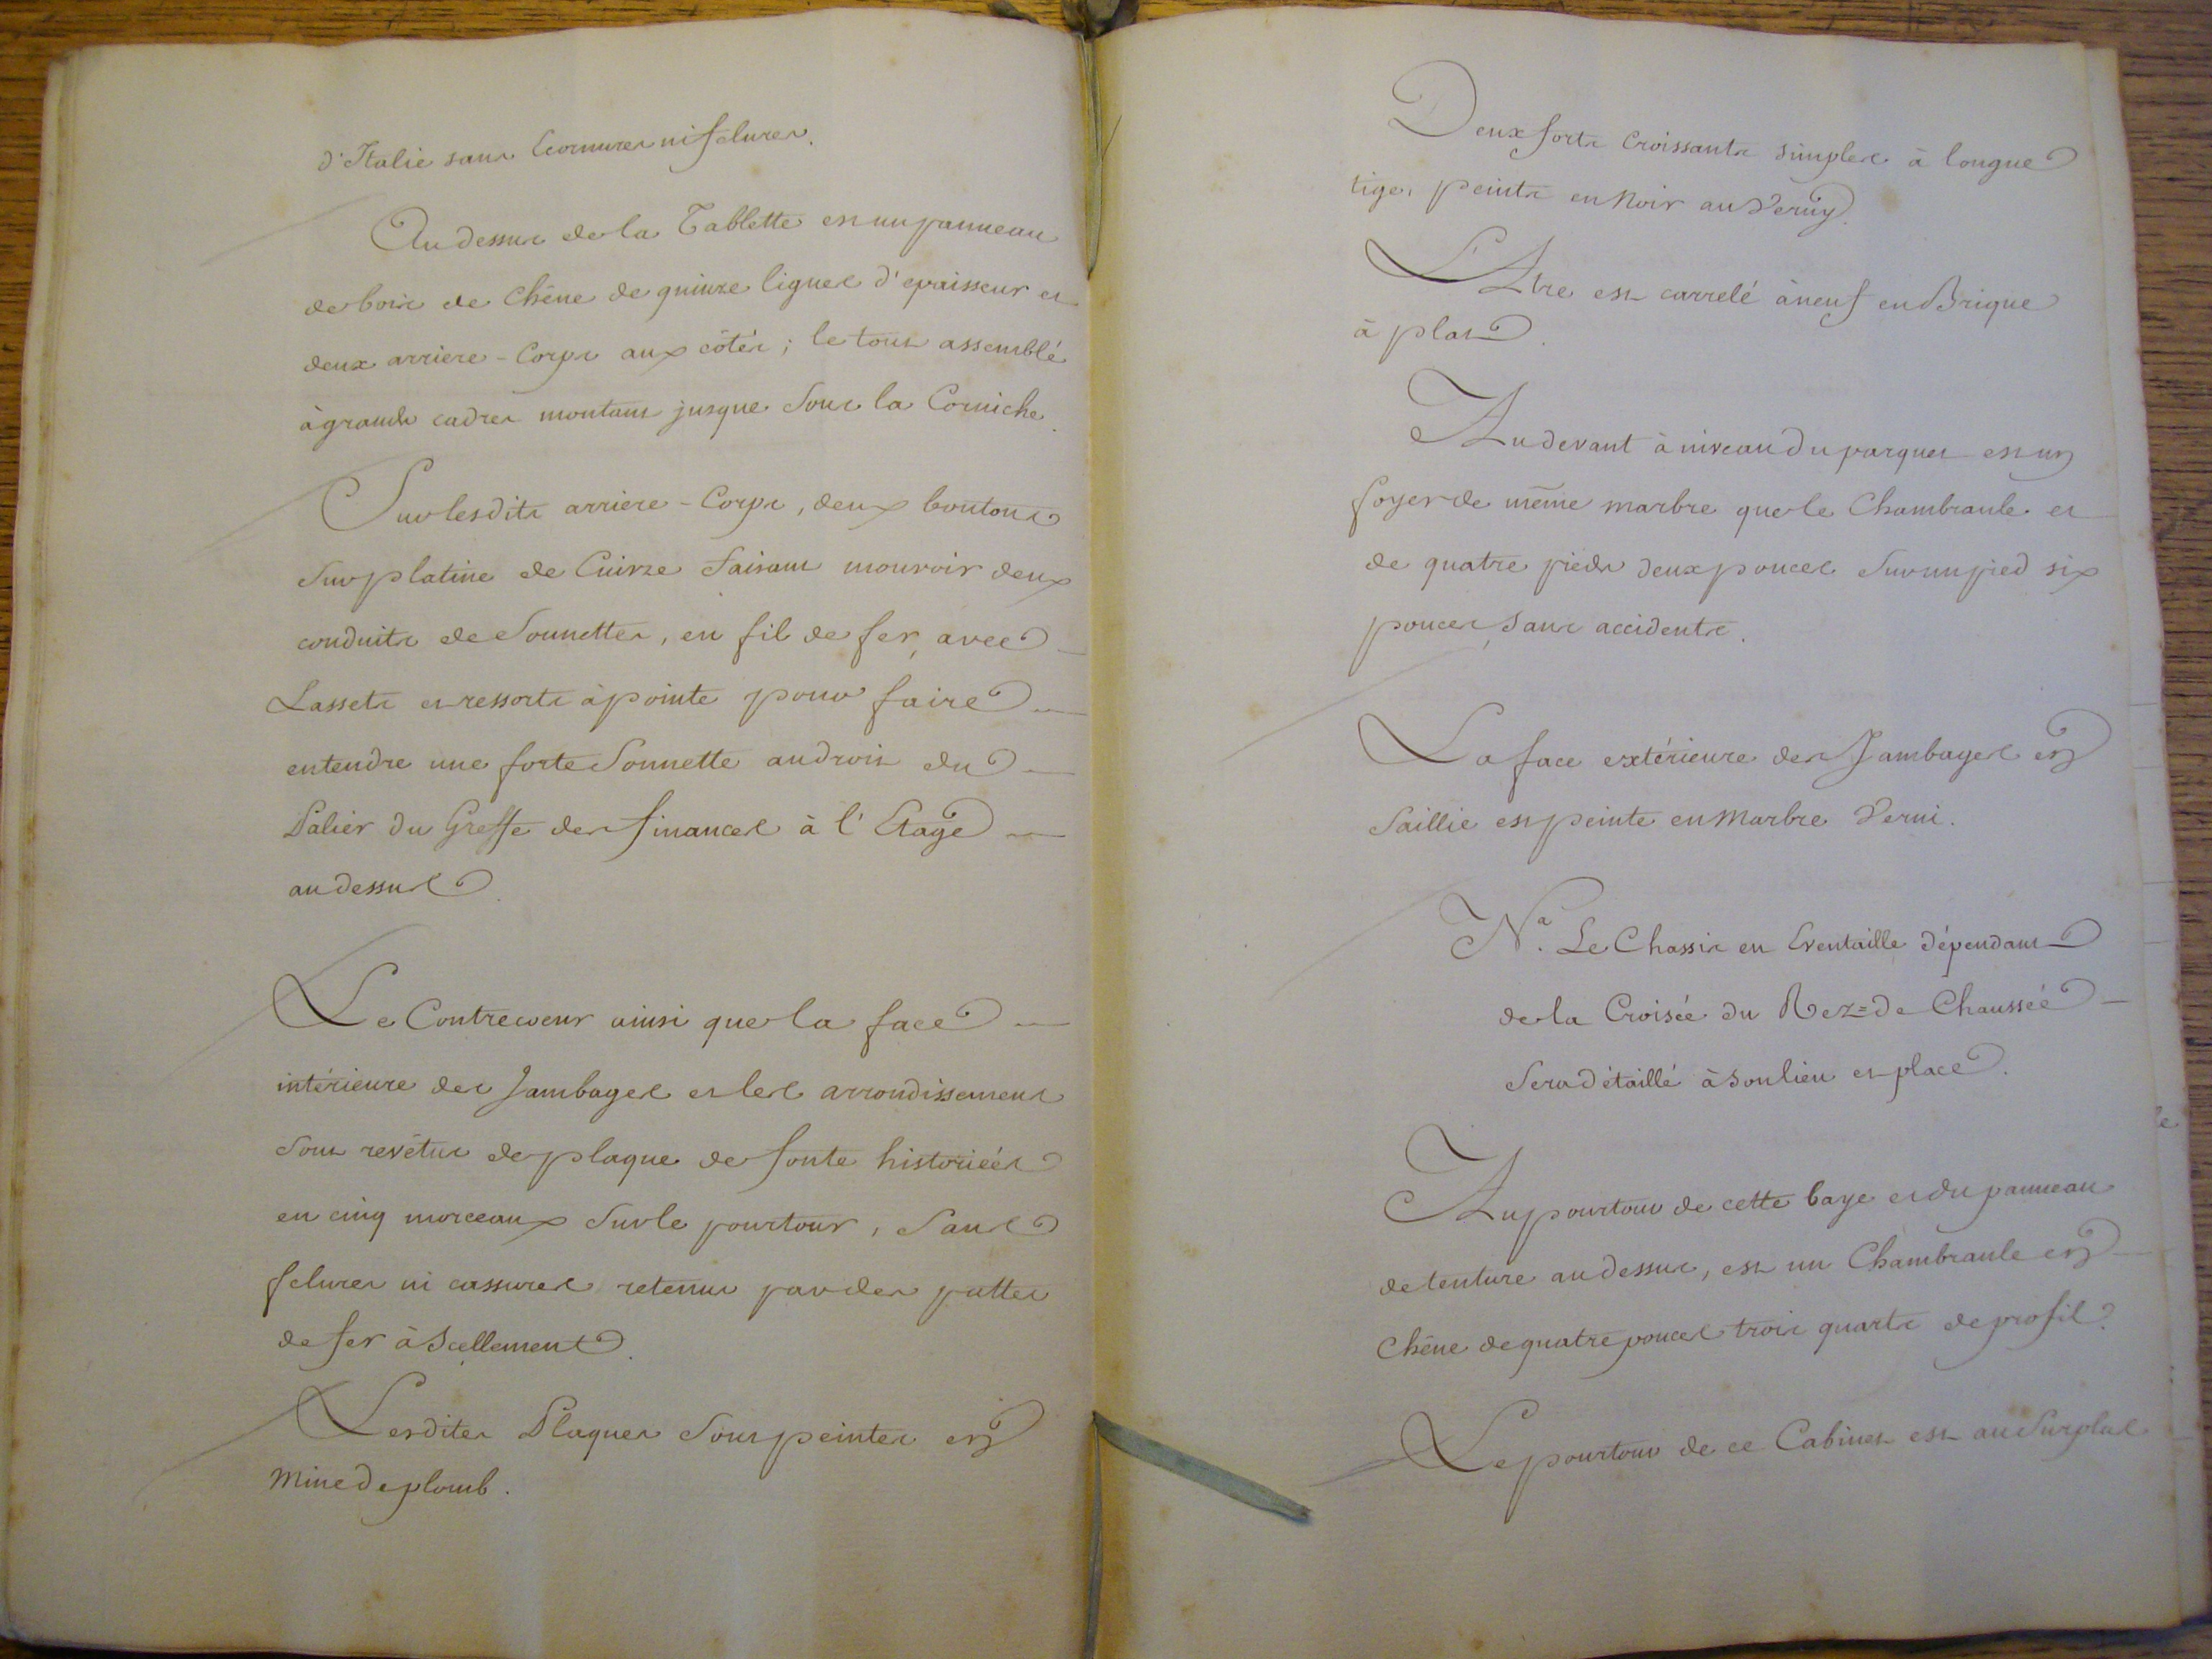 d'Italie sans Ecornures ni felures.
Au dessus de la Tablette est un panneau
de bois de Chêne de quinze lignes d'epaisseur et
deux arriere-Corps aux côtés; le tout assemblé
à grands cadres montant jusque sous la Corniche.
Sur lesdits arriere-Corps, deux boutons
sur platine de Cuivre faisant mouvoir deux
conduits de Sonnettes, en fil de fer, avec
Lassets et ressorts à pointe pour faire
entendre une forte Sonnette au droit du
Palier du Greffe des finances à l'Etage
au dessus.
Le Contrecoeur ainsi que la face
intérieure des Jambages et les arrondissemens
sont revêtus de plaque de fonte historiées
en cinq morceaux sur le pourtour, sans
felures ni cassures retenus par des pattes
de fer à Scellement.
Lesdites Plaques sont peintes en
Mine de plomb.
Deux forts Croissants simples à longue
tige, peints en Noir au Verny.
L'Atre est carrelé à neuf en Brique
à plat.
Au devant à niveau du parquet est un
foyer de même marbre que le Chambranle et
de quatre pieds deux pouces sur un pied six
pouces, sans accidents.
La face extérieure des Jambages en
saillie est peinte en Marbre Verni.
Na. Le Chassis en Eventaille dépendant
de la Croisée du Rez=de Chaussée
sera détaillé à son lieu et place.
Au pourtour de cette baye et du panneau
de tenture au dessus, est un Chambranle en
Chêne de quatre pouces trois quarts de profil.
Le pourtour de ce Cabinet est au Surplus